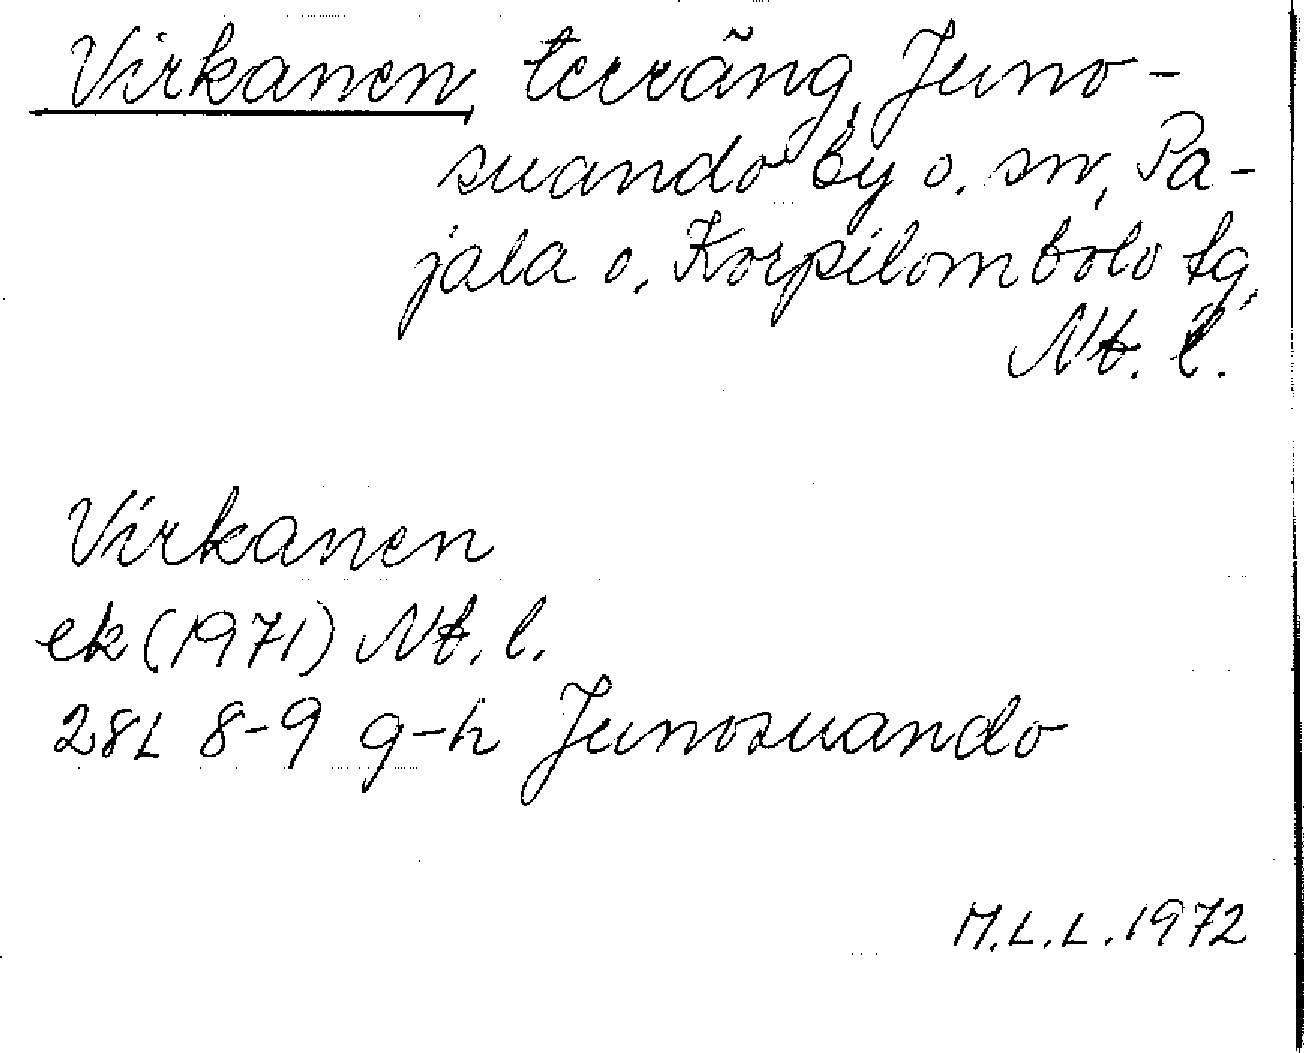 Virkanen, terräng, Juno-
suando by o. sn, Pa-
jala o. Korpilombolo tg,
Nb. l.
Virkanen
ek (1971) Nb. l.
28L 8-9 g-h Junosuando
M.L.L. 1972